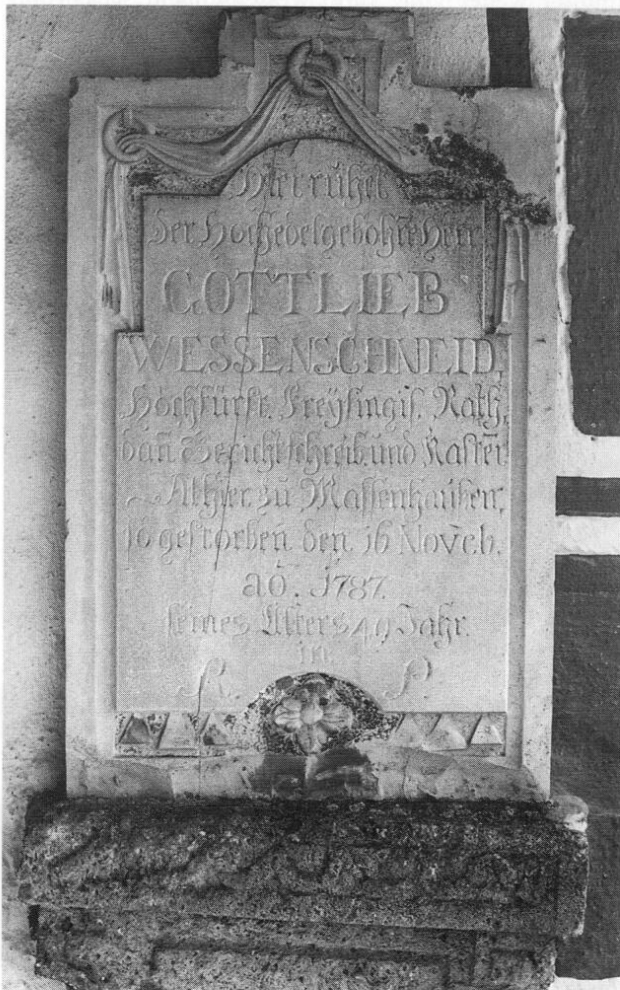 Hier ruhet
der Hochedelgebohrne Herr
GOTTLIEB
WESSENSCHNEID,
Hochfürstl. Freysingis. Rath,
dan̄ Gerichtschreib. und Kasten
Alhier zu Massenhausen,
so gestorben den 16 Noveb.
aō. 1787.
seines Alters 49 Jahr.
in
R. P.